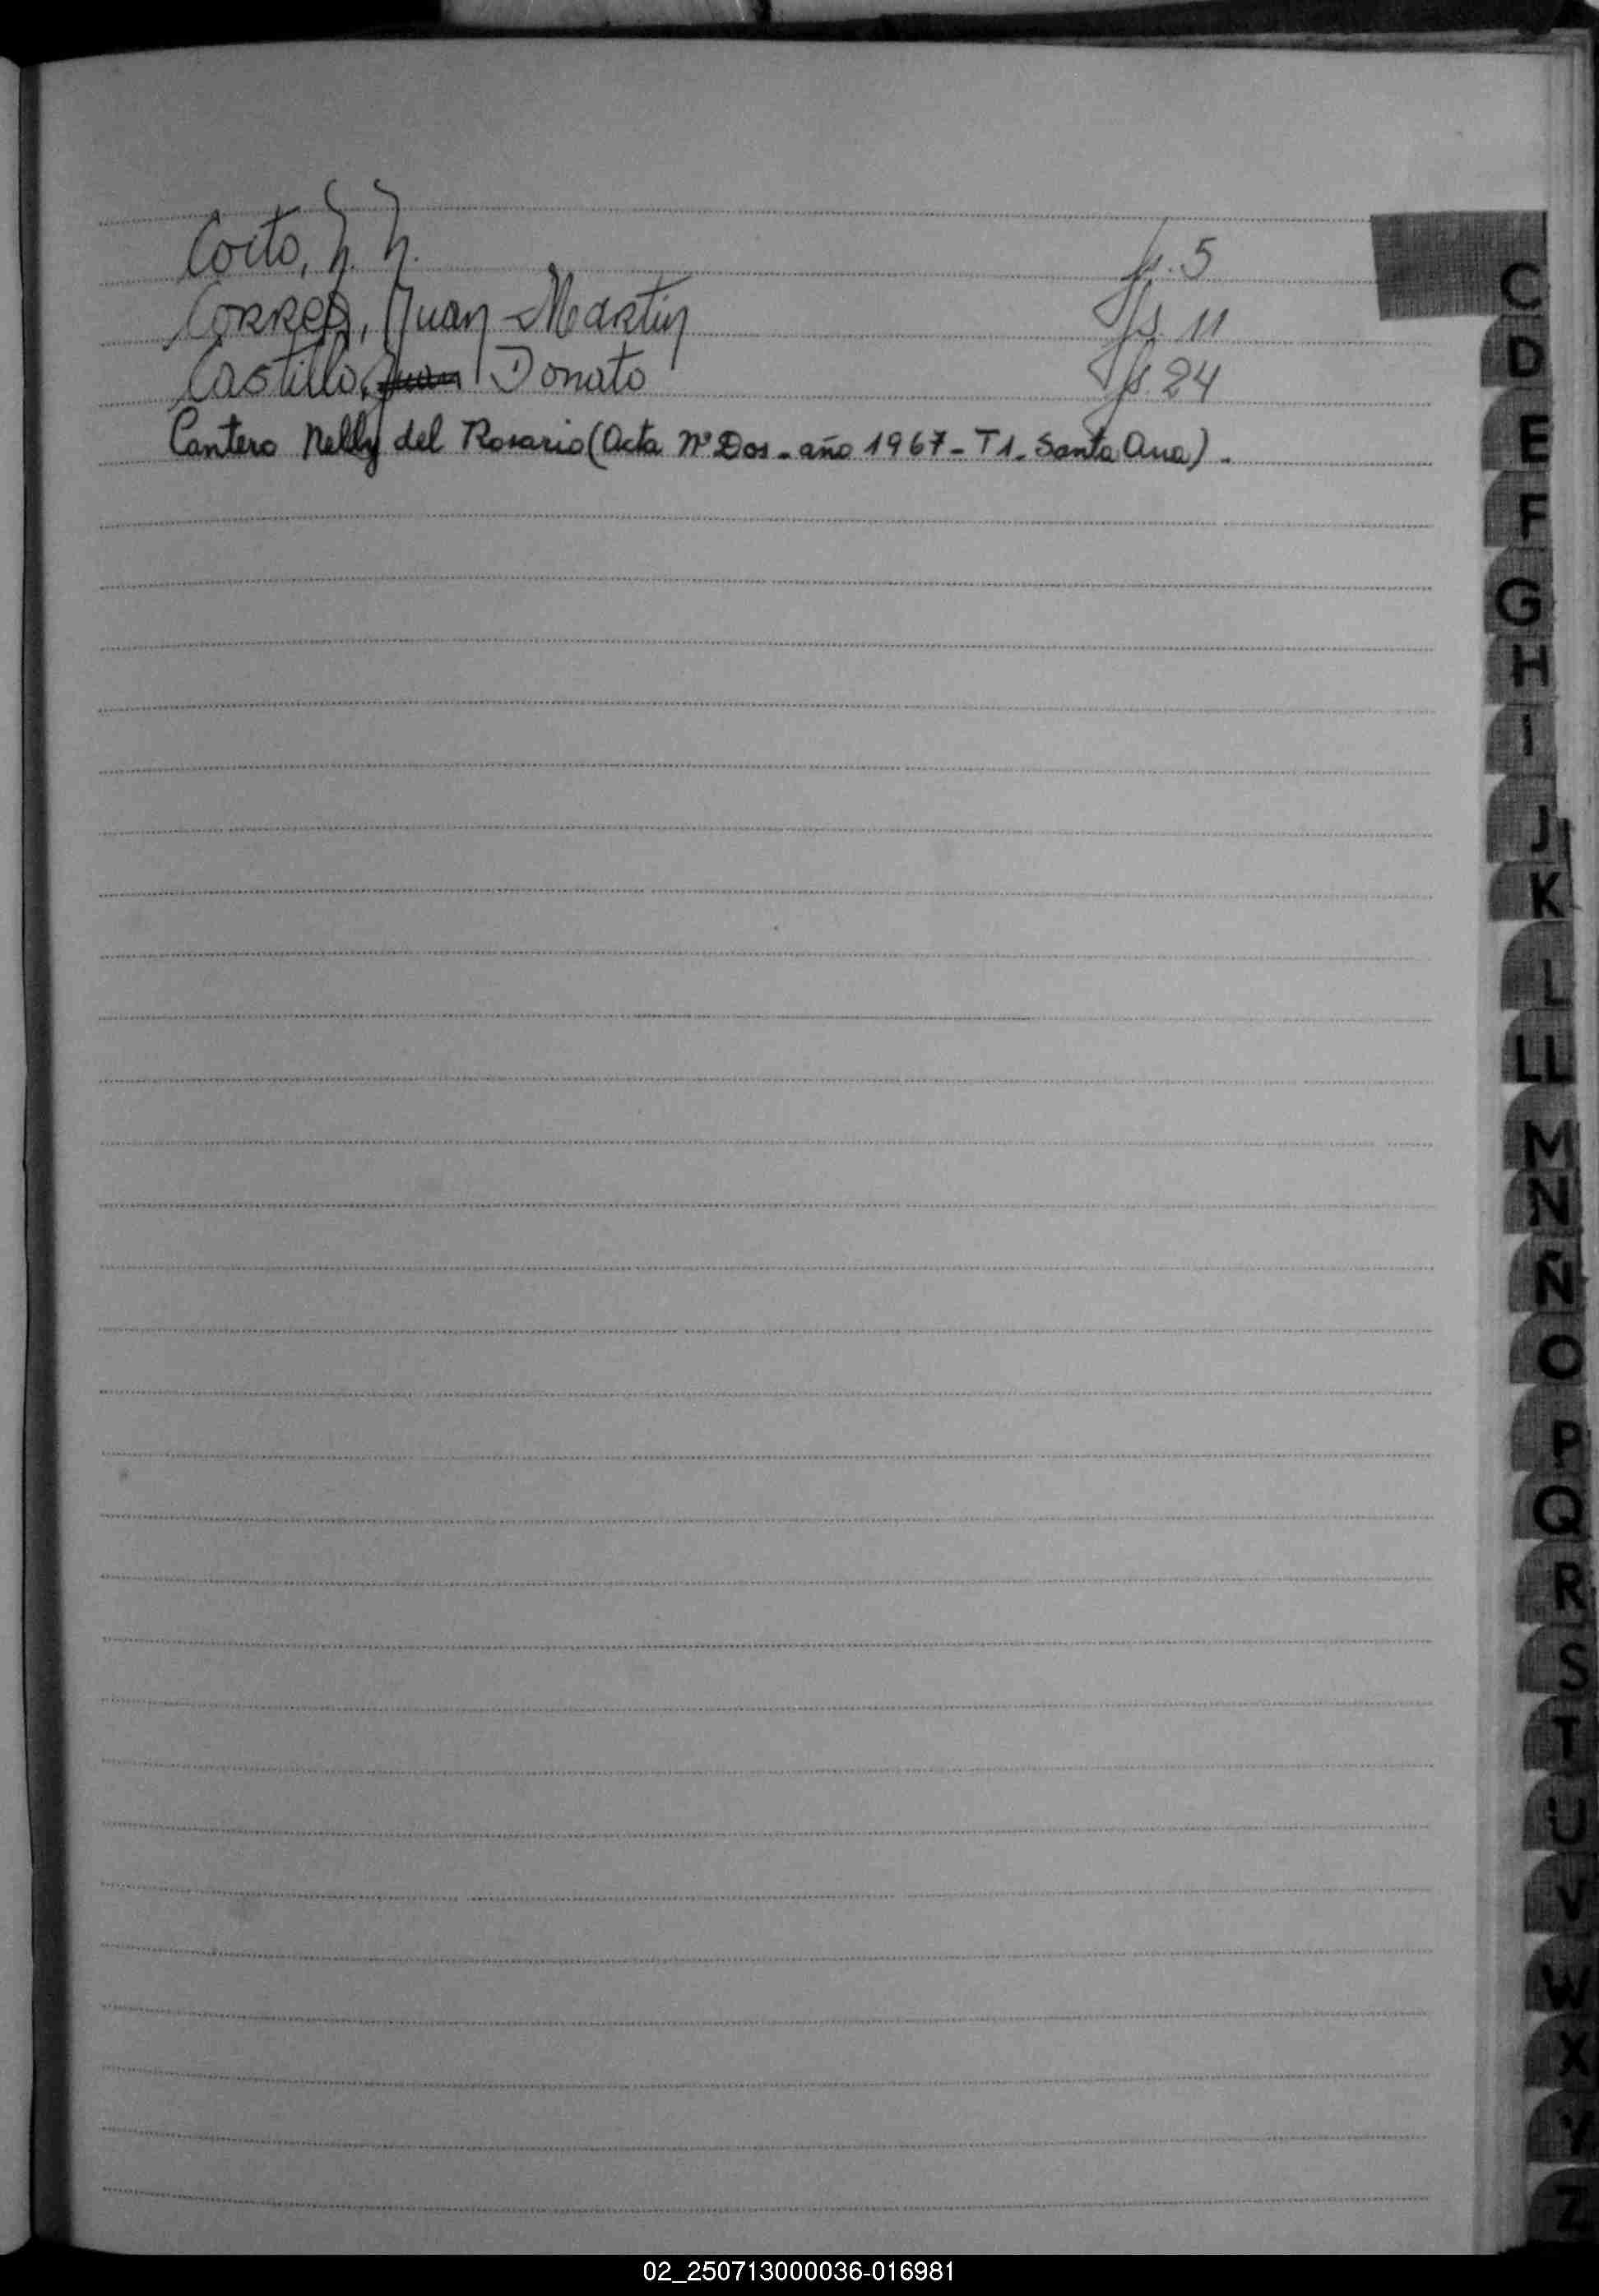 Coito, N. N. fs. 5
Correa, Juan Martin fs. 11
Castillo, Juan Donato fs. 24
Cantero Nelly del Rosario (Acta Nº Dos - año 1967 - T1 - Santa Ana) -
C
D
E
F
G
H
I
J
K
L
LL
M
N
Ñ
O
P
Q
R
S
T
U
V
W
X
Y
Z
02_250713000036-016981